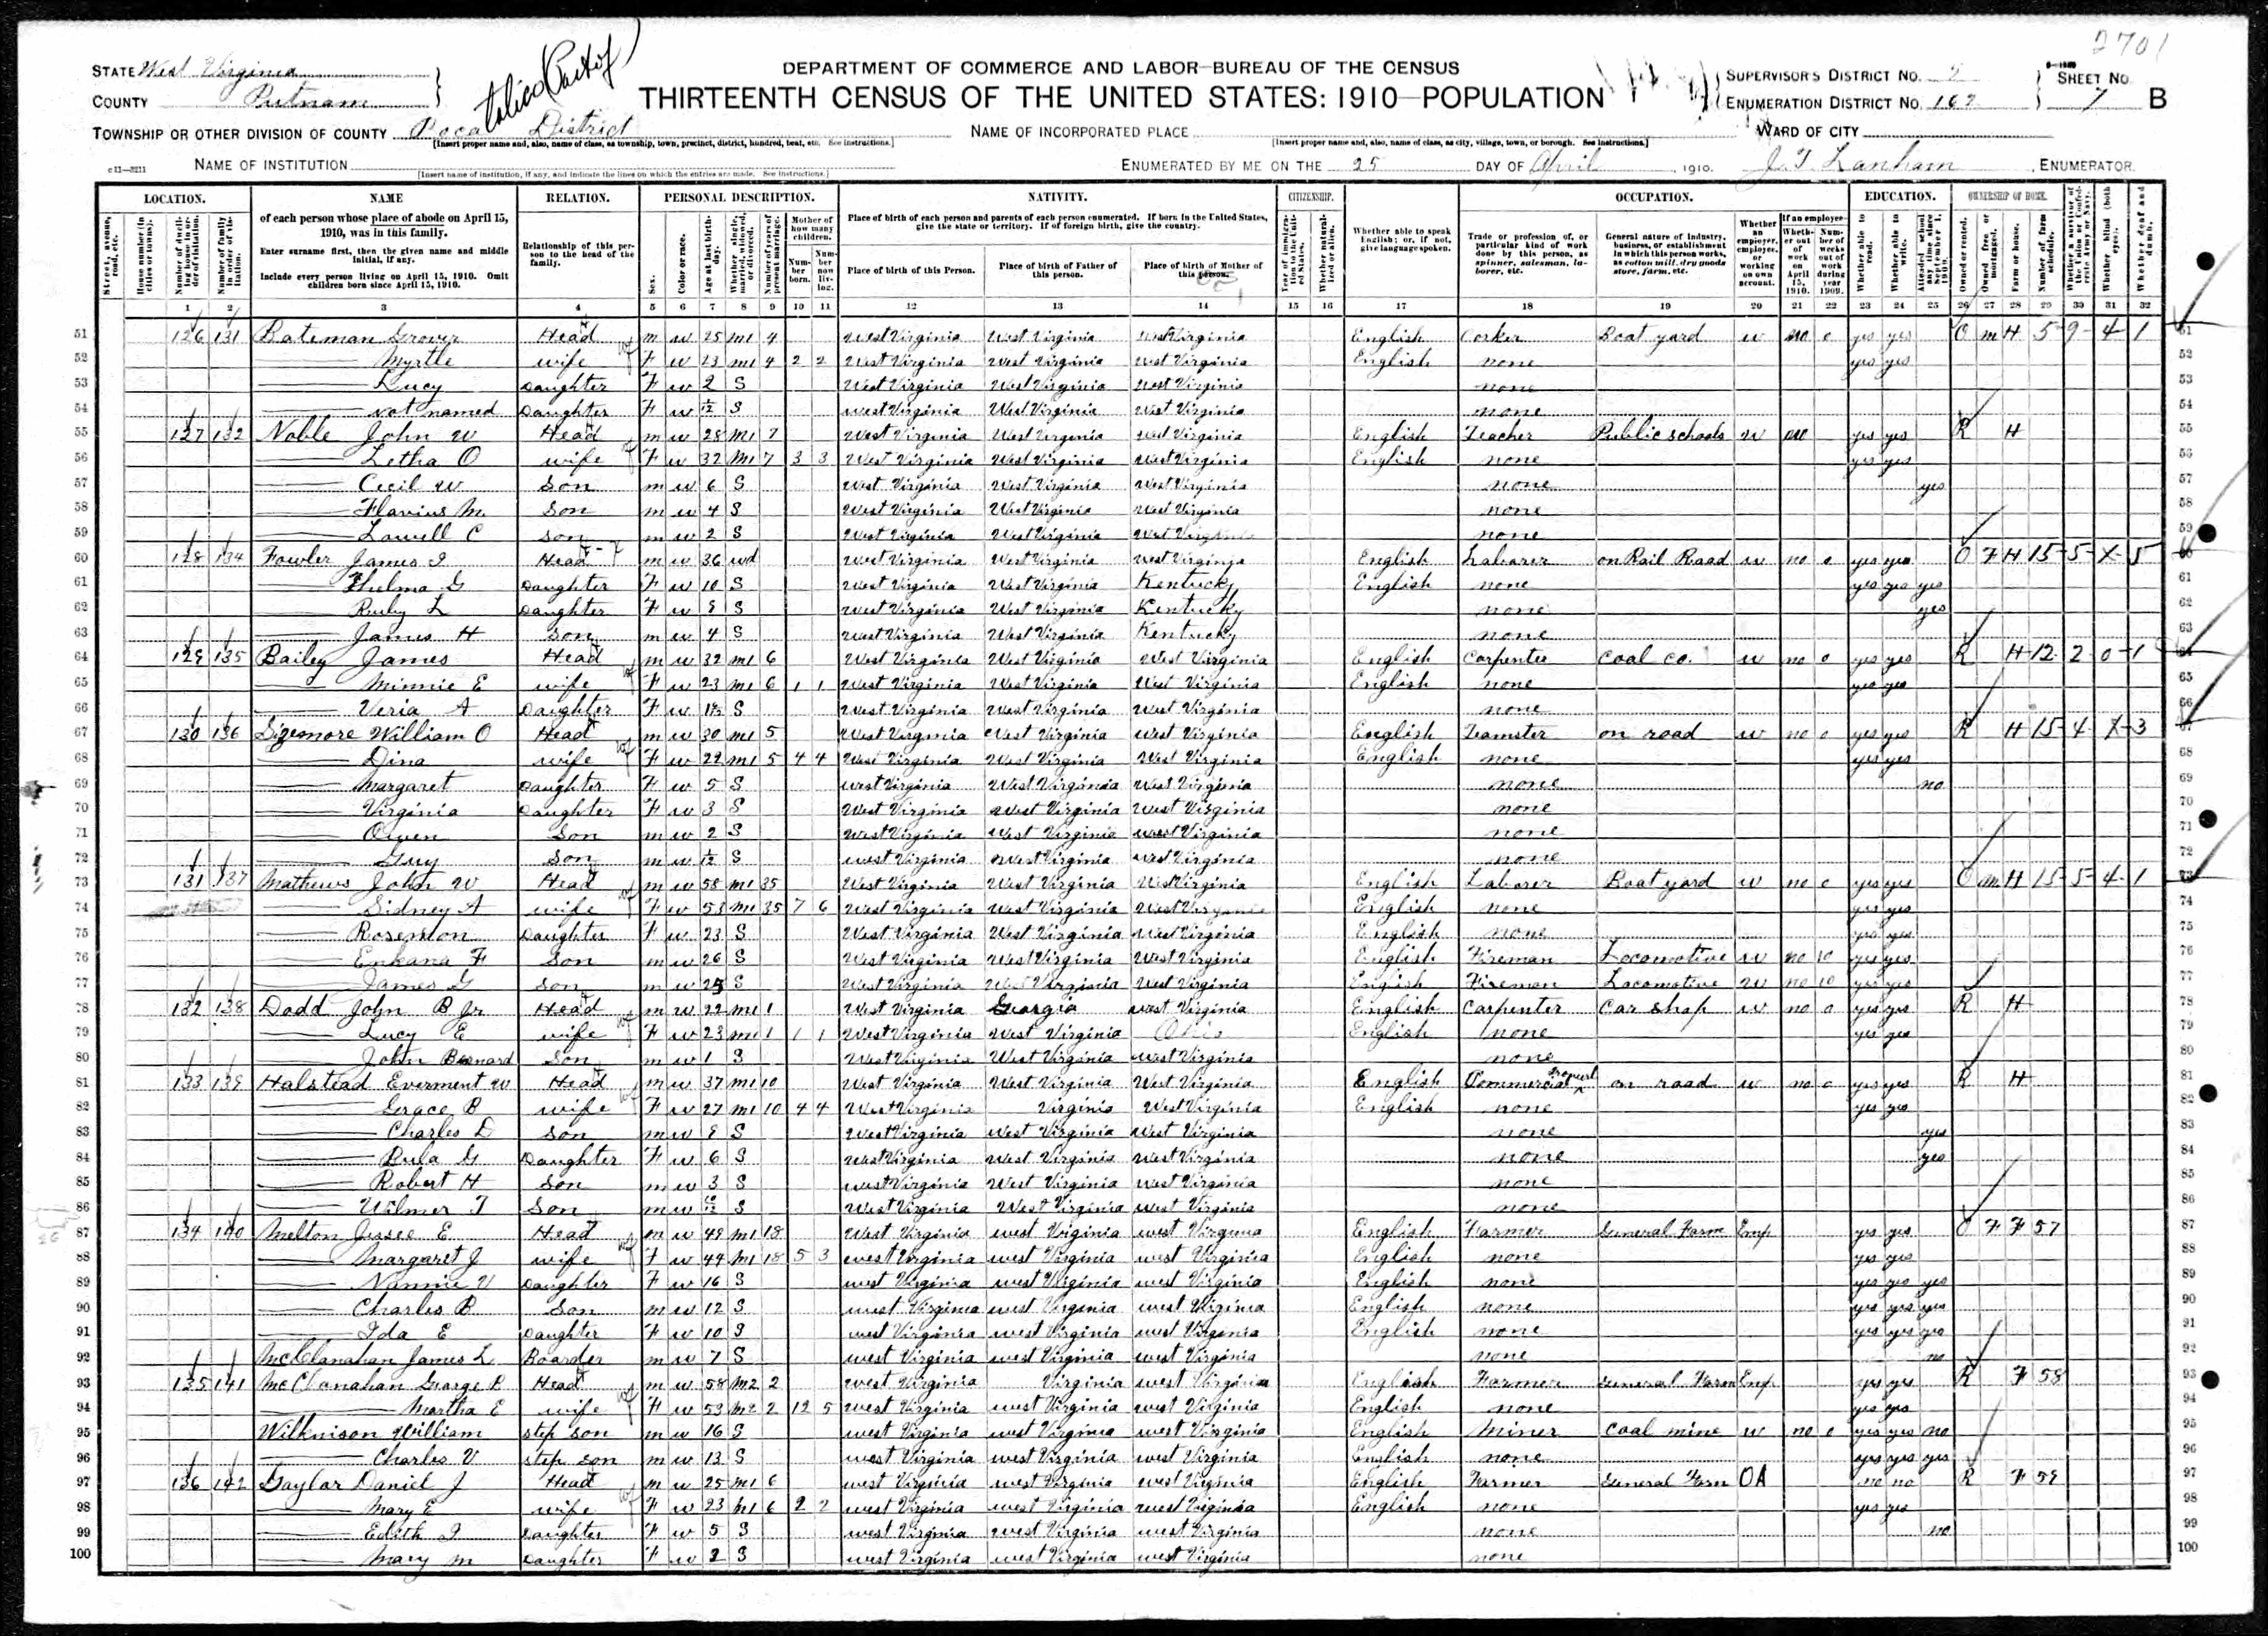 2701
STATE West Virginia
COUNTY Putnam
TOWNSHIP OR OTHER DIVISION OF COUNTY Poca District
[Insert proper name and, also, name of class, as township, town, precinct, district, hundred, beat, etc. See instructions.]
NAME OF INSTITUTION
[Insert name of institution, if any, and indicate the lines on which the entries are made. See instructions.]
DEPARTMENT OF COMMERCE AND LABOR—BUREAU OF THE CENSUS
THIRTEENTH CENSUS OF THE UNITED STATES: 1910—POPULATION
NAME OF INCORPORATED PLACE
[Insert proper name and, also, name of class, as city, village, town, or borough. See instructions.]
ENUMERATED BY ME ON THE 25 DAY OF April, 1910. J. T. Lanham, ENUMERATOR.
SUPERVISOR'S DISTRICT No. 2
ENUMERATION DISTRICT No. 162
SHEET No. 7 B
WARD OF CITY
LOCATION. NAME RELATION. PERSONAL DESCRIPTION. NATIVITY. CITIZENSHIP. OCCUPATION. EDUCATION. OWNERSHIP OF HOME.
of each person whose place of abode on April 15, 1910, was in this family.
Enter surname first, then the given name and middle initial, if any.
Include every person living on April 15, 1910. Omit children born since April 15, 1910.
Relationship of this person to the head of the family.
Place of birth of each person and parents of each person enumerated. If born in the United States, give the state or territory. If of foreign birth, give the country.
Place of birth of this Person. Place of birth of Father of this person. Place of birth of Mother of this person.
Whether able to speak English; or, if not, give language spoken.
Trade or profession of, or particular kind of work done by this person, as spinner, salesman, laborer, etc.
General nature of industry, business, or establishment in which this person works, as cotton mill, dry goods store, farm, etc.
1 2 3 4 5 6 7 8 9 10 11 12 13 14 15 16 17 18 19 20 21 22 23 24 25 26 27 28 29 30 31 32
51 126 131 Bateman Grover Head m w 25 m1 4 West Virginia West Virginia West Virginia English Corker Boat yard w no 0 yes yes O m H 5-9-4-1
52 Myrtle wife F w 23 m1 4 2 2 West Virginia West Virginia West Virginia English none yes yes
53 Lucy Daughter F w 2 S West Virginia West Virginia West Virginia none
54 not named Daughter F w 1/12 S West Virginia West Virginia West Virginia none
55 127 132 Noble John W Head m w 28 m1 7 West Virginia West Virginia West Virginia English Teacher Public schools w no yes yes R H
56 Letha O wife F w 32 m1 7 3 3 West Virginia West Virginia West Virginia English none yes yes
57 Cecil W Son m w 6 S West Virginia West Virginia West Virginia none yes
58 Flavius M. Son m w 4 S West Virginia West Virginia West Virginia none
59 Lowell C son m w 2 S West Virginia West Virginia West Virginia none
60 128 134 Fowler James I Head m w 36 wd West Virginia West Virginia West Virginia English Laborer on Rail Road w no 0 yes yes O F H 15-5-X-5
61 Thelma G Daughter F w 10 S West Virginia West Virginia Kentucky English none yes yes yes
62 Ruby L Daughter F w 8 S West Virginia West Virginia Kentucky none yes
63 James H Son m w 4 S West Virginia West Virginia Kentucky none
64 129 135 Bailey James Head m w 32 m1 6 West Virginia West Virginia West Virginia English Carpenter Coal Co. w no 0 yes yes R H 12 2 0-1
65 Minnie E wife F w 23 m1 6 1 1 West Virginia West Virginia West Virginia English none yes yes
66 Veria A Daughter F w S West Virginia West Virginia West Virginia none
67 130 136 Sizemore William O Head m w 30 m1 5 West Virginia West Virginia West Virginia English Teamster on road w no 0 yes yes R H 15-4-X-3
68 Dina wife F w 22 m1 5 4 4 West Virginia West Virginia West Virginia English none yes yes
69 Margaret Daughter F w 5 S West Virginia West Virginia West Virginia none no
70 Virginia Daughter F w 3 S West Virginia West Virginia West Virginia none
71 Owen Son m w 2 S West Virginia West Virginia West Virginia none
72 Guy Son m w 1/12 S West Virginia West Virginia West Virginia none
73 131 137 Mathews John W Head m w 58 m1 35 West Virginia West Virginia West Virginia English Laborer Boat yard w no 0 yes yes O m H 15-5-4-1
74 Sidney A wife F w 53 m1 35 7 6 West Virginia West Virginia West Virginia English none yes yes
75 Daughter F w 23 S West Virginia West Virginia West Virginia English none yes yes
76 F Son m w 26 S West Virginia West Virginia West Virginia English Fireman Locomotive w no 10 yes yes
77 James G Son m w 25 S West Virginia West Virginia West Virginia English Fireman Locomotive w no 10 yes yes
78 132 138 Dodd John B Jr Head m w 22 m1 1 West Virginia Georgia West Virginia English Carpenter Car shop w no 0 yes yes R H
79 Lucy E wife F w 23 m1 1 1 1 West Virginia West Virginia Ohio English none yes yes
80 John Bernard Son m w 1 S West Virginia West Virginia West Virginia none
81 133 139 Halstead Everment W Head m w 37 m1 10 West Virginia West Virginia West Virginia English Commercial on road w no 0 yes yes R H
82 Grace B wife F w 27 m1 10 4 4 West Virginia Virginia West Virginia English none yes yes
83 Charles D Son m w 8 S West Virginia West Virginia West Virginia none yes
84 Rula G Daughter F w 6 S West Virginia West Virginia West Virginia none yes
85 Robert H Son m w 3 S West Virginia West Virginia West Virginia none
86 Wilmer T Son m w S West Virginia West Virginia West Virginia none
87 134 140 Melton Jessee E Head m w 49 m1 18 West Virginia West Virginia West Virginia English Farmer General Farm Emp yes yes O F F 57
88 Margaret J wife F w 44 m1 18 5 3 West Virginia West Virginia West Virginia English none yes yes
89 Nannie V Daughter F w 16 S West Virginia West Virginia West Virginia English none yes yes yes
90 Charles B Son m w 12 S West Virginia West Virginia West Virginia English none yes yes yes
91 Ida E Daughter F w 10 S West Virginia West Virginia West Virginia English none yes yes yes
92 McClanahan James L Boarder m w 7 S West Virginia West Virginia West Virginia none no
93 135 141 McClanahan George P Head m w 58 m2 2 West Virginia Virginia West Virginia English Farmer General Farm Emp yes yes R F 58
94 Martha E wife F w 53 m2 2 12 5 West Virginia West Virginia West Virginia English none yes yes
95 Wilknison William step son m w 16 S West Virginia West Virginia West Virginia English Miner Coal mine w no 0 yes yes no
96 Charles V step son m w 13 S West Virginia West Virginia West Virginia English none yes yes yes
97 136 142 Gaylor Daniel J Head m w 25 m1 6 West Virginia West Virginia West Virginia English Farmer General Farm OA no no R F 59
98 Mary E wife F w 23 m1 6 2 2 West Virginia West Virginia West Virginia English none yes yes
99 Edith I Daughter F w 5 S West Virginia West Virginia West Virginia none no
100 Mary M Daughter F w 2 S West Virginia West Virginia West Virginia none